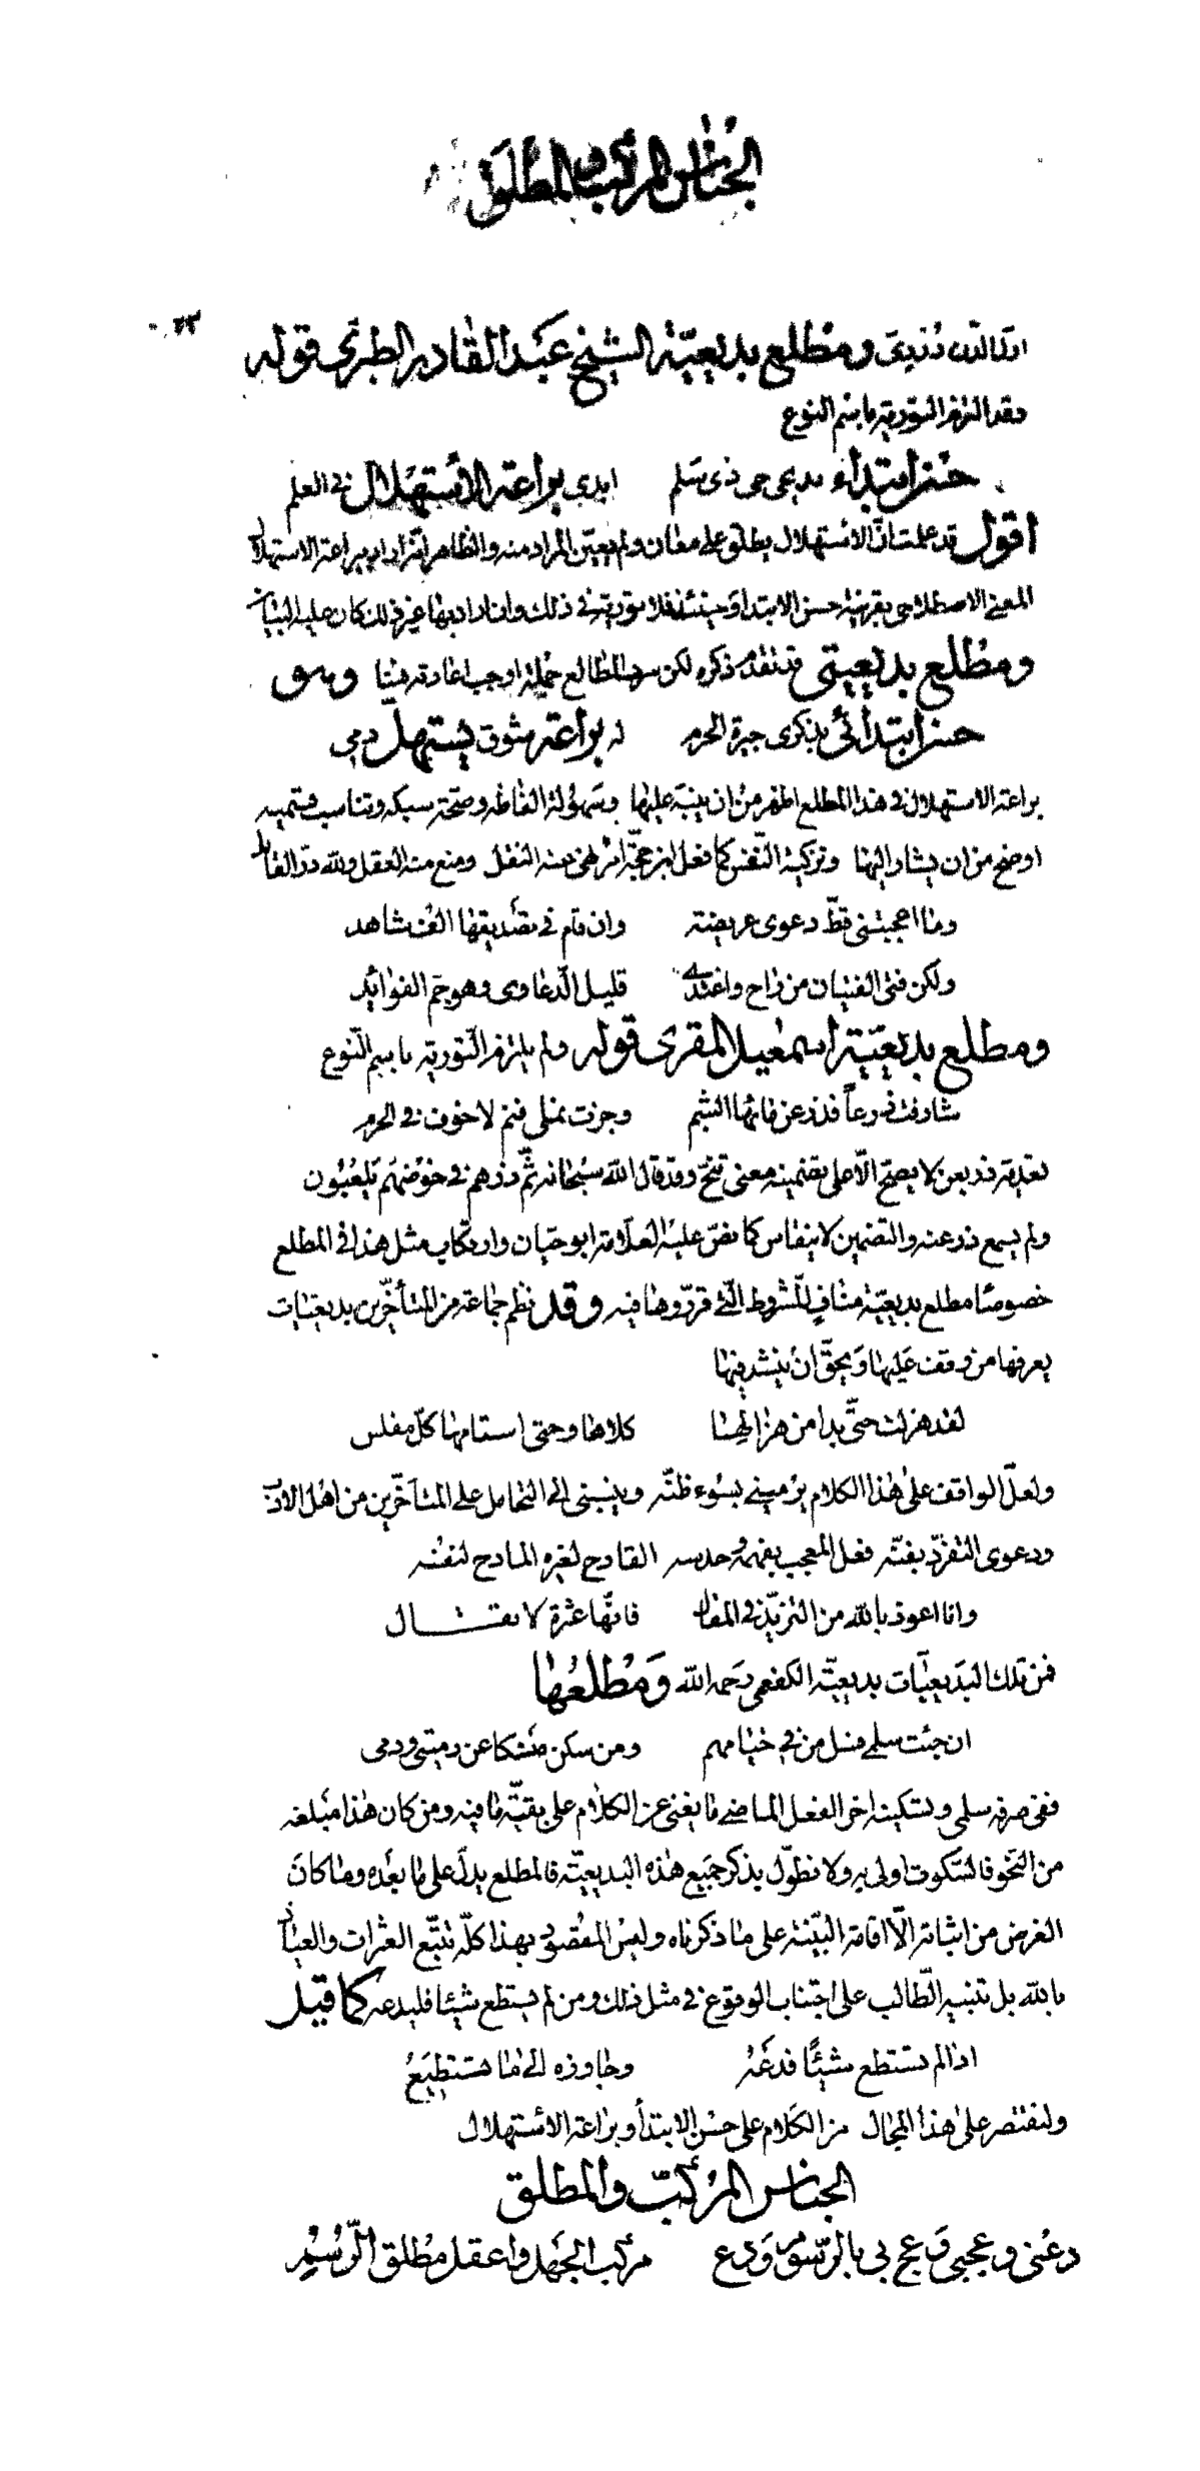 الجناس المركب والمطلق
٢٣
ومطلع بديعيّة الشيخ عبد القادر الطبري قوله
وقد التزم التورية باسم النوع
حسن ابتداء مديحي حي ذي سلم ابدي براعة الاستهلال في العلم
اقول قد علمت انّ الاستهلال يطلق على معان ولم يعيّن المراد منه والظاهر انّه اراد ببراعة الاستهلال
المعنى الاصطلاحي بقرينة حسن الابتدا وحينئذ فلا تورية في ذلك وان اراد بها غير ذلك كان عليه البيان
ومطلع بديعيتي قد تقدّم ذكره لكن سرد المطالع جملة اوجب اعادته هنا وهو
حسن ابتدائي بذكرى جيرة الحرم له براعة شوق يستهلّ دمي
براعة الاستهلال في هذا المطلع اظهر من ان ينبّه عليها وسهولة الفاظه وصحّة سبكه وتناسب قسميه
اوضح من ان يشار اليها وتزكية النّفس كما فعل ابن حجّة امر نهى عنه النقل ومنع منه العقل ولله درّ القائل
وما اعجبتني قطّ دعوى عريضة وان قام في تصديقها الف شاهد
ولكن فتى الفتيان من راح واغتدى قليل الدّعاوى وهو جمّ الفوائد
ومطلع بديعيّة اسمعيل المقري قوله ولم يلتزم التّورية باسم النّوع
شارفت ذرعاً فذر عن مائها الشبم وجزت نملى فنم لا خوف في الحرم
تعدية فذر بعن لا يصحّ الّا على تضمينه معنى تنحّ وقد قال الله سبحانه ثمّ ذرهم في خوضهم يلعبون
ولم يسمع ذر عنه والتضمين لا ينقاس كما نصّ عليه العلّامة ابو حيّان وارتكاب مثل هذا في المطلع
خصوصًا مطلع بديعيّة منافٍ للّشروط الّتي قرّروها فيه وقد نظم جماعة من المتأخّرين بديعيّات
يعرفها من وقف عليها ويحقّ ان ينشد فيها
لقد هزلت حتّى بدا من هزالها كلاها وحتى استامها كلّ مفلس
ولعلّ الواقف على هذا الكلام يرميني بسوء ظنّه وينسبني الى التحامل على المتأخّرين من اهل الادب
ودعوى التفرّد بفنّه فعل المعجب بفهمه وحدسه القادح لغيره المادح لنفسه
وانا اعوذ بالله من التزيّد في المقال فانّها عثرة لا تقال
فمن تلك البديعيّات بديعيّة الكفعمي رحمه الله ومطلعها
ان جئت سلمى فسل من في خيامهم ومن سكن منسكا عن دميتي ودمي
ففي صرفه سلمى وتسكينه اخر الفعل الماضي ما يغني عن الكلام على بقيّة ما فيه ومن كان هذا مبلغه
من النّحو فالسّكوت اولى به ولا نطوّل بذكر جميع هذه البديعيّة فالمطلع يدلّ على ما بعده وما كان
الغرض من اثباته الّا اقامة البيّنة على ما ذكرناه وليس المقصود بهذا كلّه تتبّع العثرات والعياذ
بالله بل تنبيه الطّالب على اجتناب الوقوع في مثل ذلك ومن لم يستطع شيئا فليدعه كما قيل
اذا لم تستطع شيئًا فدعه وجاوزه الى ما تستطيع
ولنقتصر على هذا المجال من الكلام على حسن الابتدأ وبراعة الاستهلال
الجناس المركّب والمطلق
دعني وعجبي وعج بي بالرّسوم ودع مركّب الجهل واعقل مطلق الرّسم